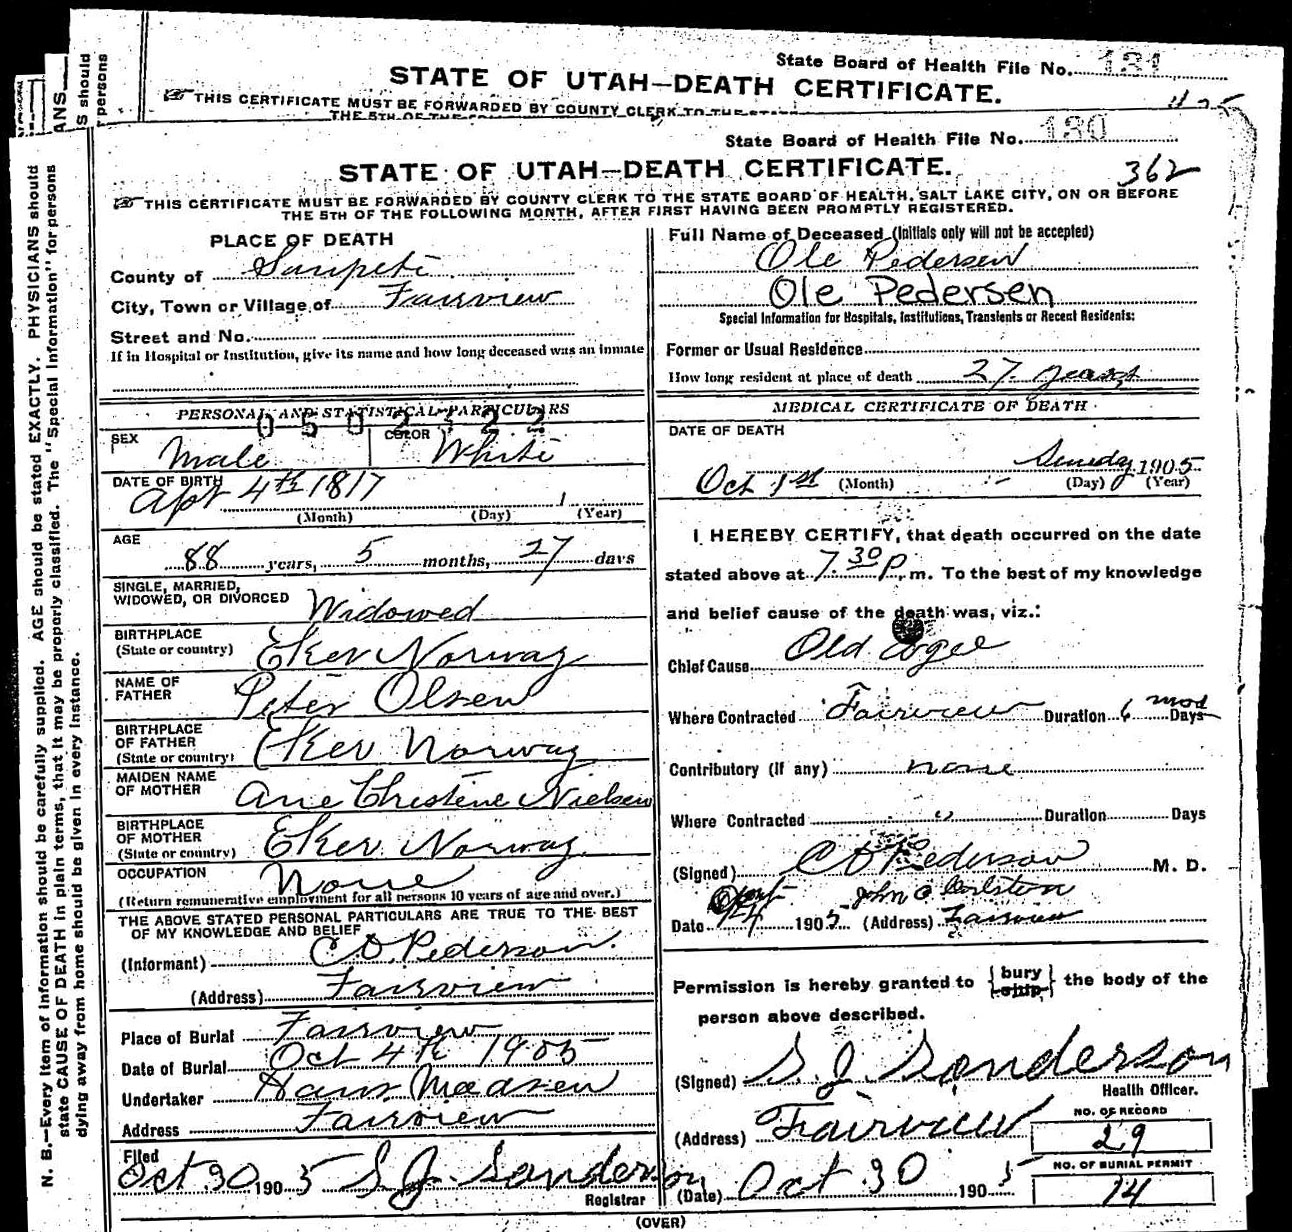 State Board of Health File No. 131
STATE OF UTAH—DEATH CERTIFICATE.
THIS CERTIFICATE MUST BE FORWARDED BY COUNTY CLERK TO THE STATE
THE 5TH OF THE
State Board of Health File No. 130
STATE OF UTAH—DEATH CERTIFICATE.
362
THIS CERTIFICATE MUST BE FORWARDED BY COUNTY CLERK TO THE STATE BOARD OF HEALTH, SALT LAKE CITY, ON OR BEFORE
THE 5TH OF THE FOLLOWING MONTH, AFTER FIRST HAVING BEEN PROMPTLY REGISTERED.
PLACE OF DEATH
County of Sanpete
City, Town or Village of Fairview
Street and No.
If in Hospital or Institution, give its name and how long deceased was an inmate
PERSONAL AND STATISTICAL PARTICULARS
SEX Male
COLOR White
DATE OF BIRTH
Apr 4th 1817
(Month) (Day) (Year)
AGE
88 years, 5 months, 27 days
SINGLE, MARRIED,
WIDOWED, OR DIVORCED Widowed
BIRTHPLACE
(State or country) Eker Norway
NAME OF
FATHER Peter Olsen
BIRTHPLACE
OF FATHER
(State or country) Eker Norway
MAIDEN NAME
OF MOTHER Ane Christene Nielsen
BIRTHPLACE
OF MOTHER
(State or country) Eker Norway
OCCUPATION None
(Return remunerative employment for all persons 10 years of age and over.)
THE ABOVE STATED PERSONAL PARTICULARS ARE TRUE TO THE BEST
OF MY KNOWLEDGE AND BELIEF
(Informant) C O Pederson.
(Address) Fairview
Place of Burial Fairview
Date of Burial Oct 4th 1905
Undertaker Hans Madsen
Address Fairview
Filed
Oct 30 1905 S J Sanderson
Registrar
Full Name of Deceased (Initials only will not be accepted)
Ole Pedersen
Ole Pedersen
Special Information for Hospitals, Institutions, Transients or Recent Residents:
Former or Usual Residence
How long resident at place of death 27 years
MEDICAL CERTIFICATE OF DEATH
DATE OF DEATH
Oct 1st 1905
(Month) (Day) (Year)
I HEREBY CERTIFY, that death occurred on the date
stated above at 7.30 P. m. To the best of my knowledge
and belief cause of the death was, viz.:
Chief Cause Old age
Where Contracted Fairview Duration 6 mos Days
Contributory (if any) none
Where Contracted Duration Days
(Signed) C O Pederson M. D.
Date 1905 (Address) Fairview
Permission is hereby granted to { bury ship } the body of the
person above described.
(Signed) S. J. Sanderson
Health Officer.
(Address) Fairview
(Date) Oct 30 1905
NO. OF RECORD
29
NO. OF BURIAL PERMIT
14
(OVER)
N. B.—Every item of information should be carefully supplied. AGE should be stated EXACTLY. PHYSICIANS should
state CAUSE OF DEATH in plain terms, that it may be properly classified. The "Special Information" for persons
dying away from home should be given in every instance.